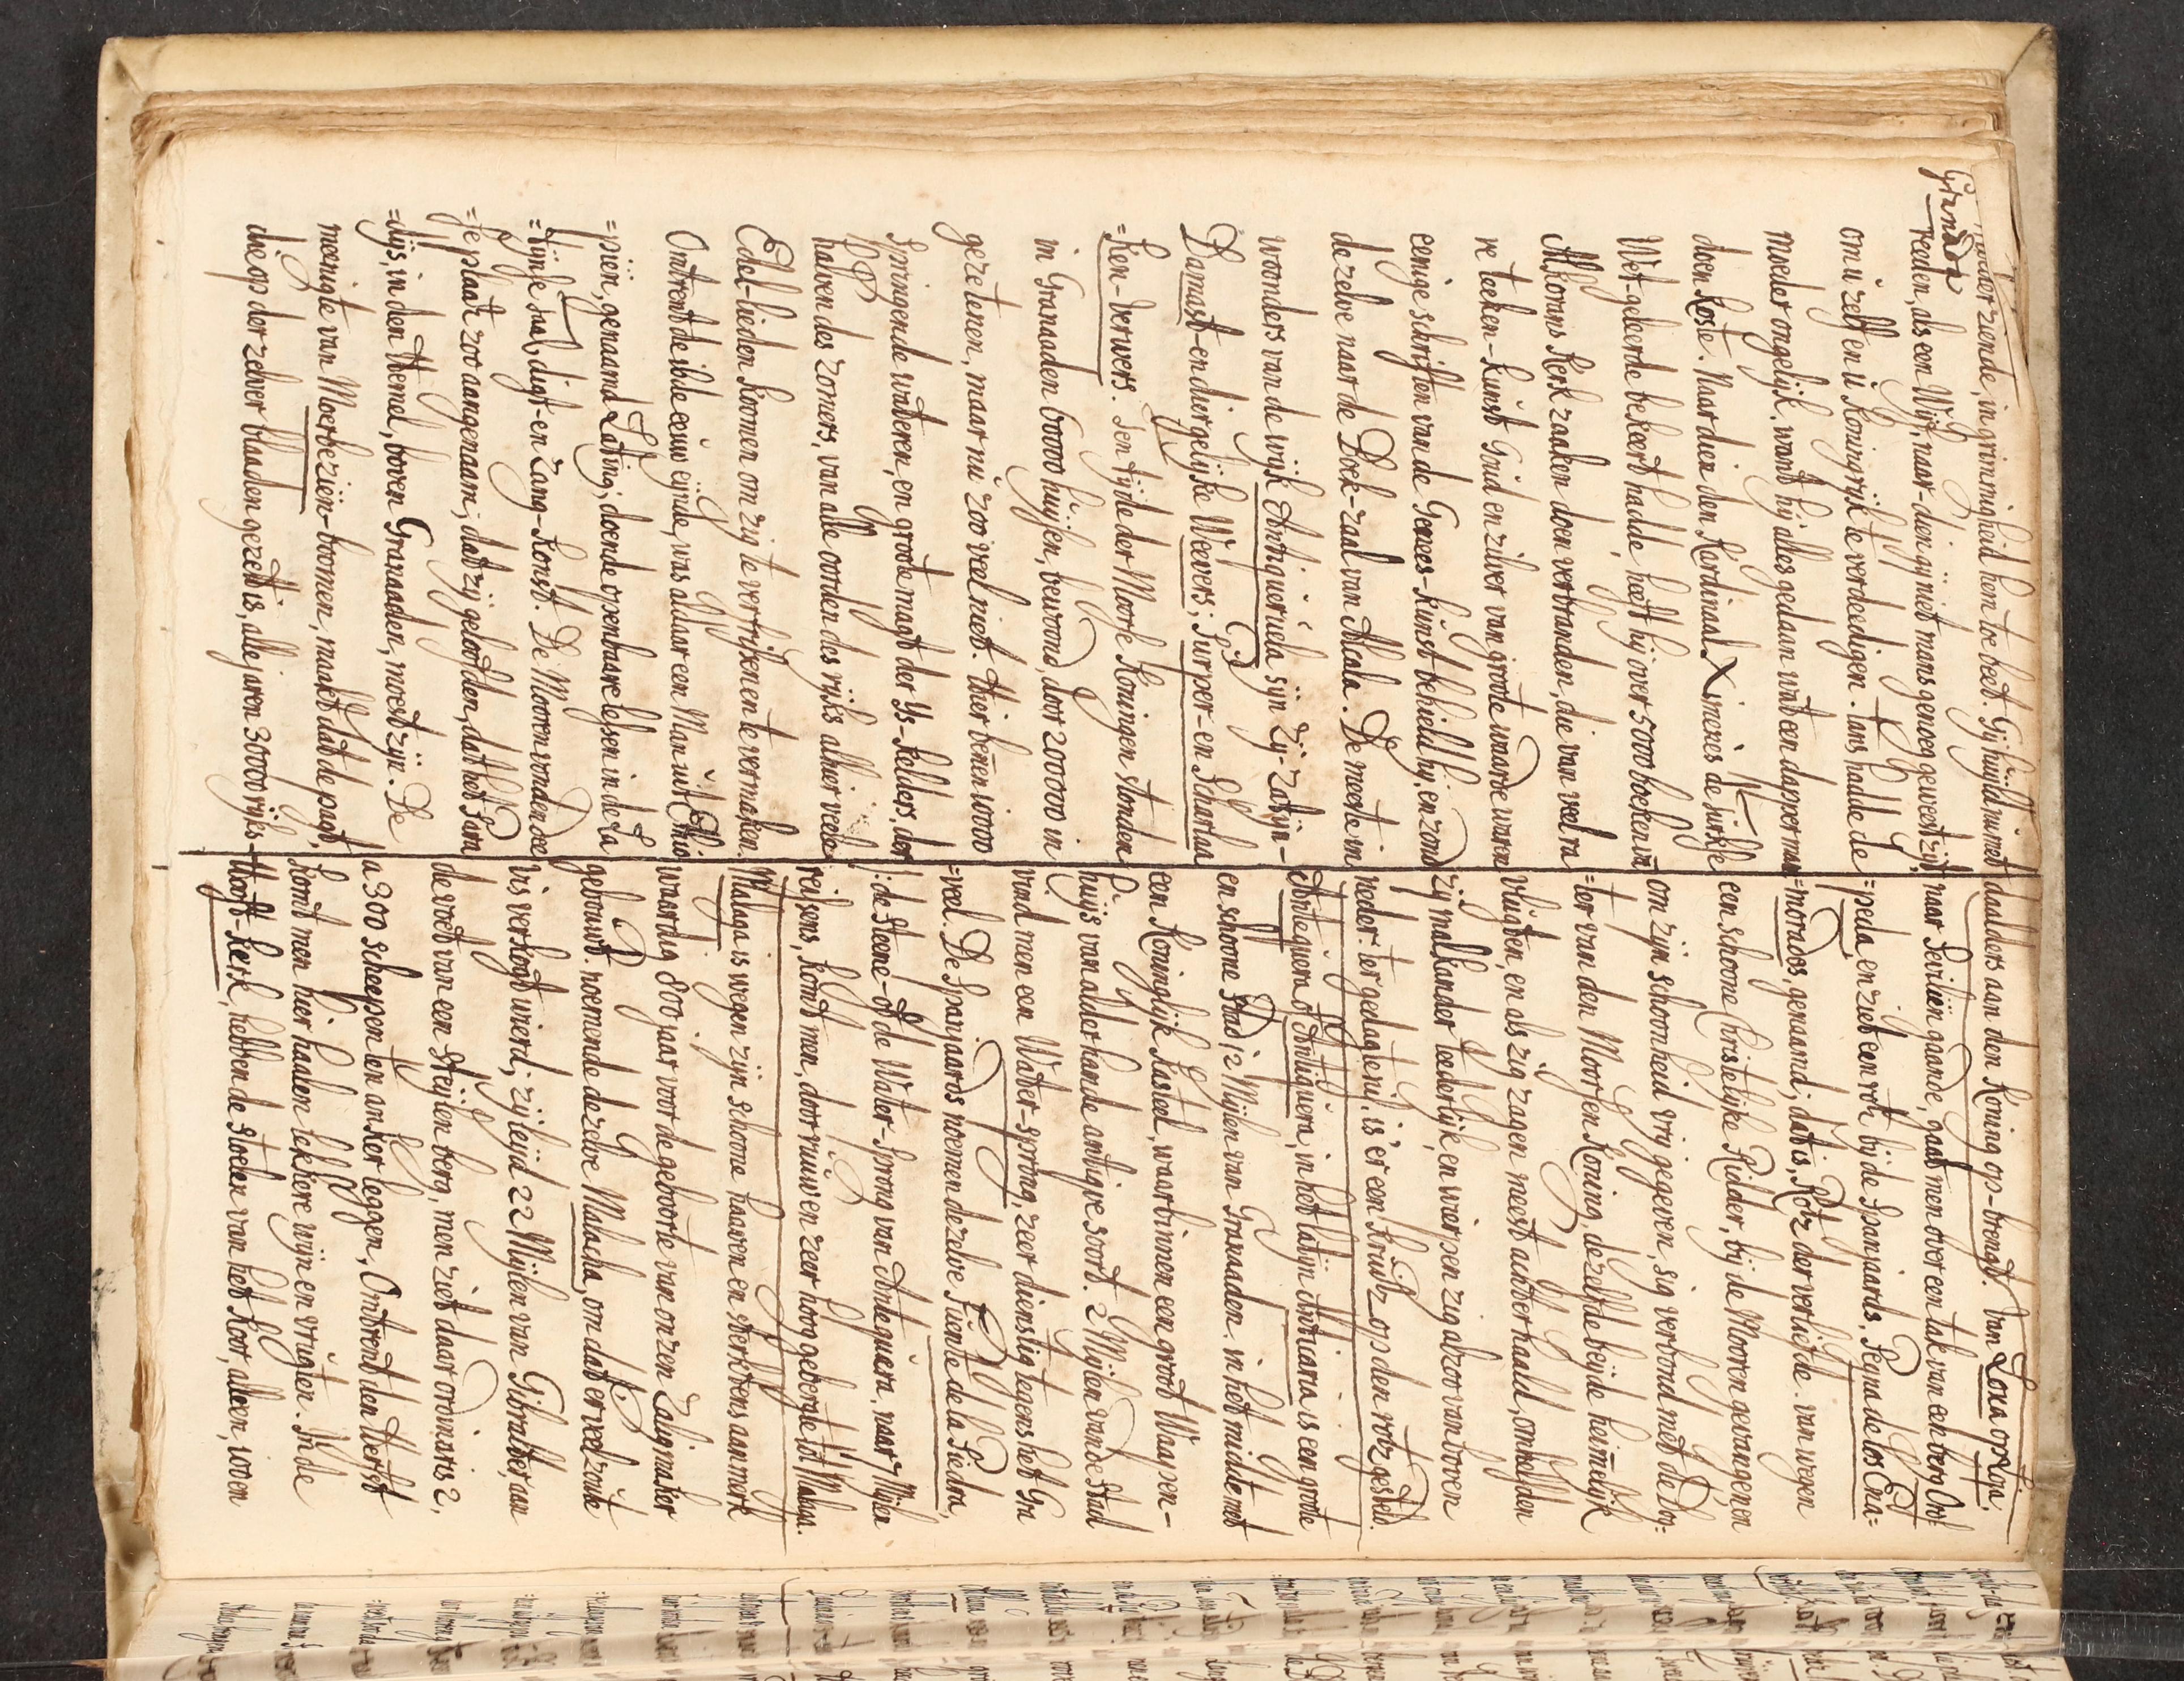 Granada
moeder ziende, in grimmigheid hem toe beet. Gij huijld nu met
reeden, als een Wijf, naar-dien gij niet mans genoeg geweest zijt,
om u zelf en u Koningrijk te verdeedigen. Tans hadde de
moeder ongelijk, want hij alles gedaan wat een dapper man
doen koste. Naar dien den Kardinaal Ximenes de turkse
Wet-geleerde bekeert hadde, heeft hij over 5000 boeken van
Alkorans Kerk zaaken doen verbranden, die van veel ra
re teeken-kunst Goud en zilver van groote waarde waren
eenige schriften van de Genees-kunst behield hij, en zond
dezelve naar de Boek-zaal van Alcala. De meeste in
woonders van de wijk Antiqueruela sijn Zij-Zatijn-
Damast-en diergelijke Weevers; Purper-en Scharlaa
=ken-Verwers. Ten tijde der Moorse Koningen stonden
in Granaden 60000 huijsen, bewoond, door 200000 in
gezetenen, maar nu zoo veel niet. Hier benen 10000
springende wateren, en groote magt der Ys-kelders, der
halven des zomers, van alle oorden des rijks alhier veele
Edel-lieden koomen om zig te verrijken en te vermaken.
Omtrent de 16de eeuw eijnde, was aldaar een Man uit Ethio
=piën, genaamd Latinj, doende openbaare lessen in de La
=tijnse taal, digt-en zang-konst. De Mooren vonden dee
=se plaats zoo aangenaam, dat zij geloofden, dat het Para
=dijs, in den Hemel, boven Granaden, moest zijn. De
meenigte van Moerbeziën-boomen, maakt dat de pagt,
die op der zelver blaaden gezet is, alle jaren 30000 rijks-
daalders aan den Koning op-brengt. Van Loxa op Loja,
naar Seviliën gaande, gaat men over een tak van een berg Oro=
=peda, en ziet een rots bij de Spanjaards, Penna de los Ena=
=morados, genaamd, dat is, Rots der verliefde. van wegen
een schoone Christelijke Ridder, bij de Mooren gevangen en
om zijn schoonheid vrij gegeven, sig verbond met de Dog=
=ter van den Moorsen Koning, dezelfde beijde heimelijk
vlugten, en als zig zagen meest achterhaald, omhelsden
zij malkander teederlijk, en wierpen zig alzoo van boven
neder. ter gedagtenis is'er een Kruis op den rots gesteld.
Antequera of Antiquera, in het latijn Anticaria is een groote
en schoone Stad 12 Mijlen van Granaden. in het midde met
een Koninglijk Kasteel, waar binnen een groot Waapen-
huijs van alder hande antique soort. 2 Mijlen van de Stad
vind men een Water-sprong, zeer dienstig teegens het Gra
=veel. De Spanjaards noemen dezelve Fuente de la Piedra,
: de Steene-of de Water-Sprong van Antequera, naar 7 Mijlen
reisens, komt men, door ruuw en zeer hoog gebergte tot Malaga.
Malaga is wegen zijn schoone haaven en sterktens aanmerk
waardig 800 jaar voor de geboorte van onzen Zaligmaker
gebouwt. noemende dezelve Malacha, om dat er veel zout
vis verkogt wierd; zij leijd 22 Mijlen van Gibralter, aan
de voet van een steijlen berg, men ziet daar ordinaris 2,
a 300 scheepen ten anker leggen, Omtrent den Herfst
komt men hier haalen lekkere wijn en vrugten. In de
Hooft-kerk, hebben de stoelen van het Koor, alleen, 100 en